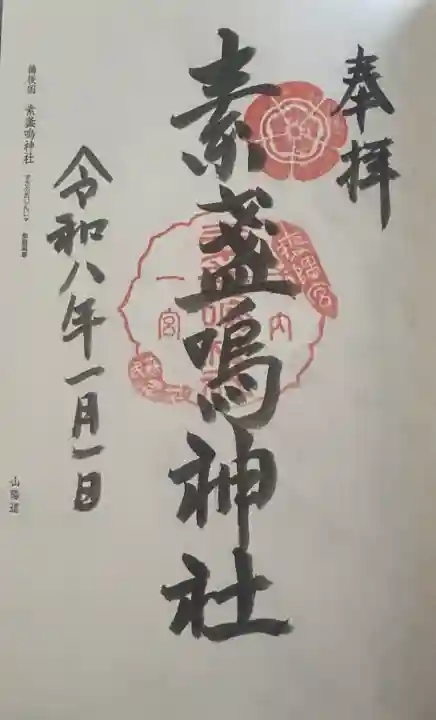 奉拝
素盞嗚神社
一宮
内
令和八年一月一日
備後国 素盞嗚神社
山陽道